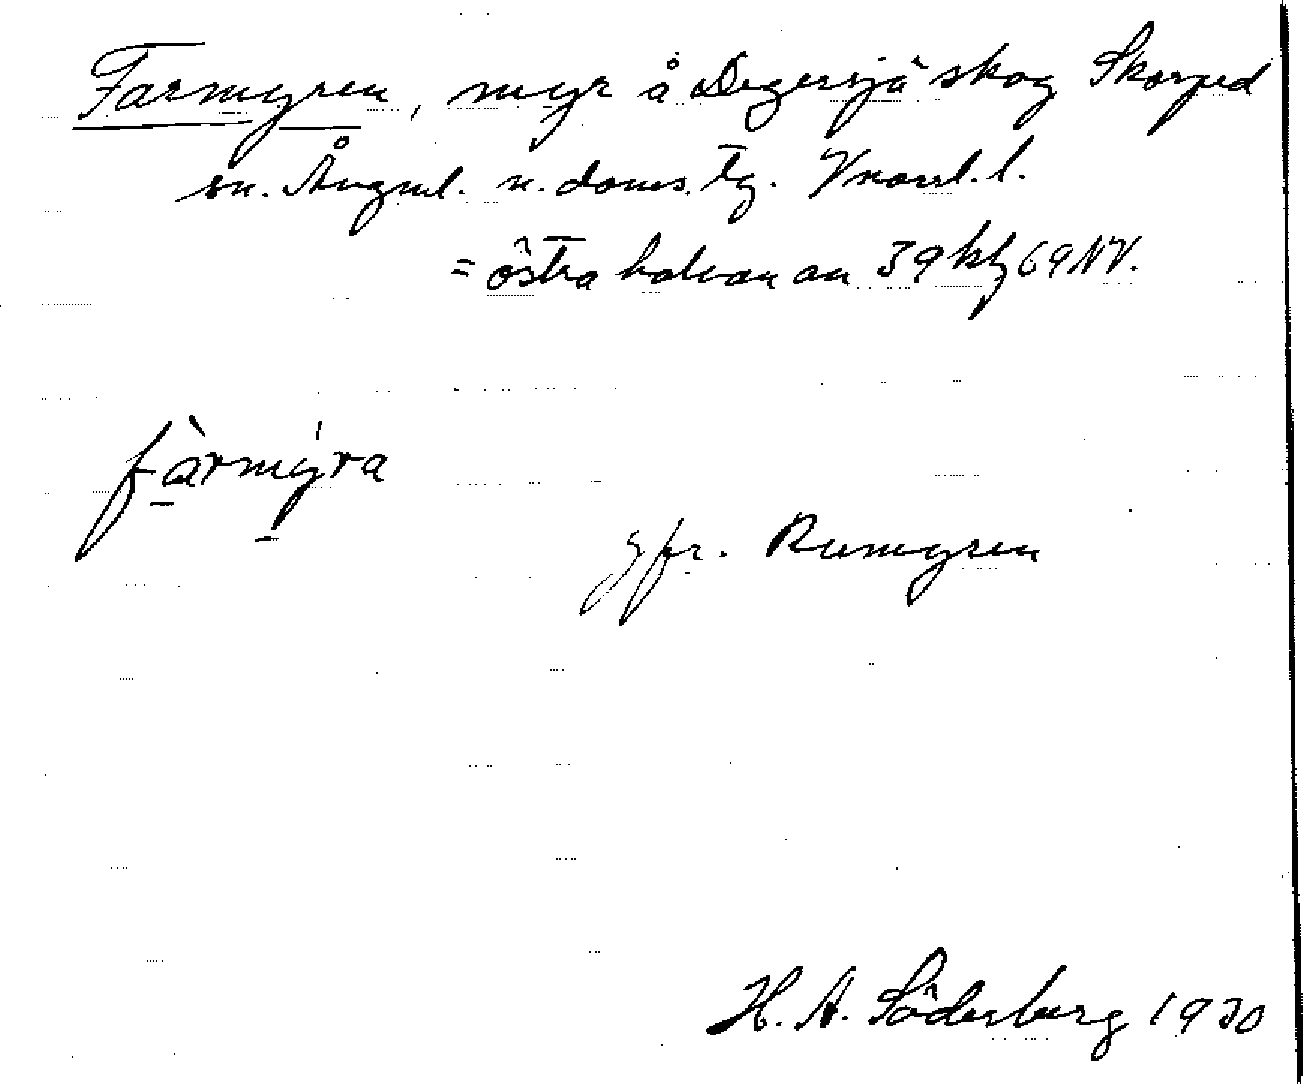 Farmyren, myr å Degersjö skog Skorped
sn. Ångml. n. doms. tg. Vnorrl. l.
= östra halvan av 39 kbj 69 NV.
fàrmýra
jfr. Rumyren
H. A. Söderberg 1930